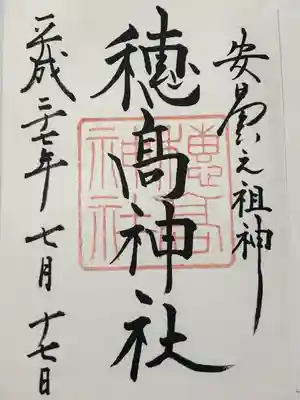 安曇 祖神
穗髙神社
穂高
神社
平成二十七年 七月 十七日